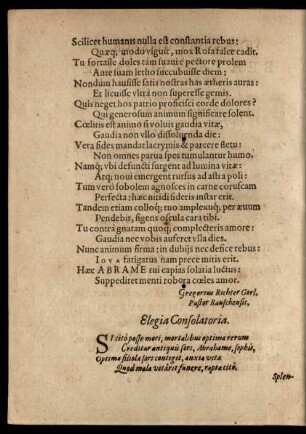 Scilicet humanis nulla est constantia rebus:
Quæq; modo viguit, mox Rosa falce cadit.
Tu fortasse doles tàm suaui è pectore prolem
Ante suam letho succubuisse diem;
Nondùm hausisse satis nostras has ætheris auras:
Et licuisse vltrà non superesse gemis.
Quis neget hos patrio proficisci corde dolores?
Qui generosum animum significare solent.
Cœlitis est animo si voluis gaudia vitæ,
Gaudia non vllo dissoluenda die:
Vera fides mandat lacrymis & parcere fletu:
Non omnes parua spes tumulantur humo.
Namq; vbi defuncti surgent ad lumina vitæ:
Atq; noui emergent rursus ad astra poli:
Tum verò sobolem agnosces in carne coruscam
Perfecta; hæc nitidi sideris instar erit.
Tandem etiam colloq; tuo amplexuq; per æuum
Pendebit, figens oscula cara tibi.
Tu contrà gnatam quoq; complecteris amore:
Gaudia nec vobis auferet vlla dies.
Nunc animum firma: in dubijs nec defice rebus:
IOVA fatigatus nam prece mitis erit.
Hæc ABRAME tui capias solatia luctus:
Suppeditet menti robora cœles amor.
Gregorius Richter Gorl.
Pastor Rauschensis.
Elegia Consolatoria.
SI citò posse mori, mortalibus optima rerum
Creditur antiquis sors, Abrahame, sophis,
Optima filiola sors contigit, anxia vita
Quod mala vitârit funere, rapta citò.
Splen-